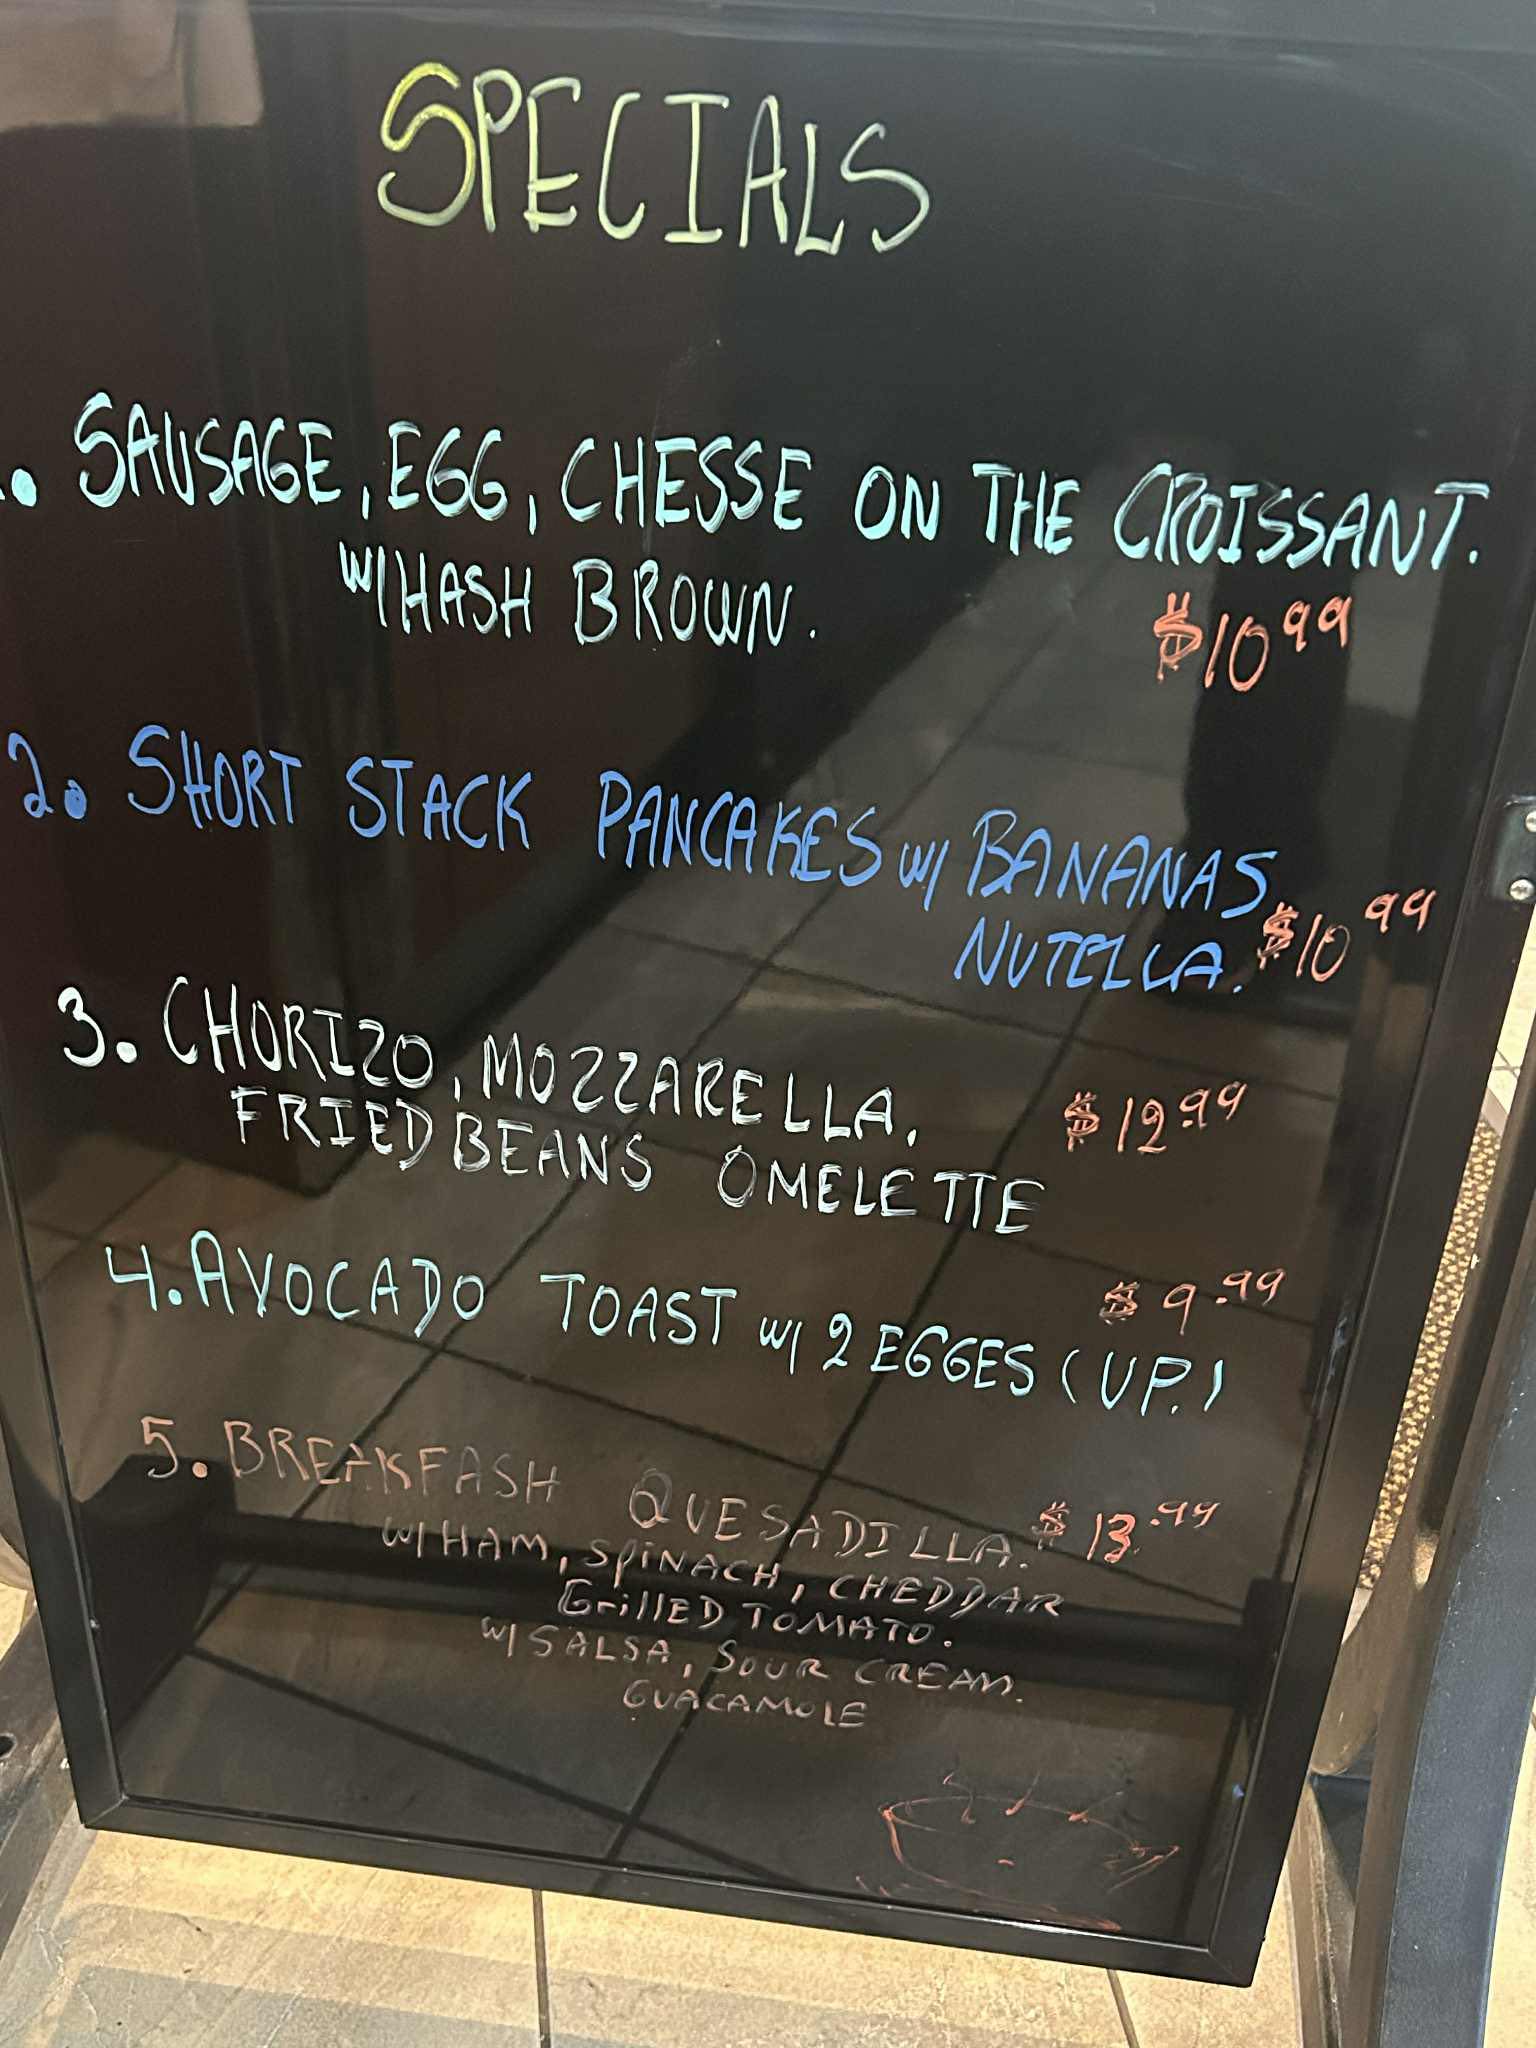 SPECIALS
1. SAUSAGE, EGG, CHESSE ON THE CROISSANT.
W/HASH BROWN.
$10.99
2. SHORT STACK PANCAKES W/ BANANAS
NUTELLA. $10.99
3. CHORIZO, MOZZARELLA.
FRIED BEANS OMELETTE
$12.99
4. AVOCADO TOAST W/ 2 EGGES (UP.)
$9.99
5. BREAKFASH QUESADILLA. $13.99
W/HAM, SPINACH, CHEDDAR
GrillED TOMATO.
W/ SALSA, SOUR CREAM.
GUACAMOLE